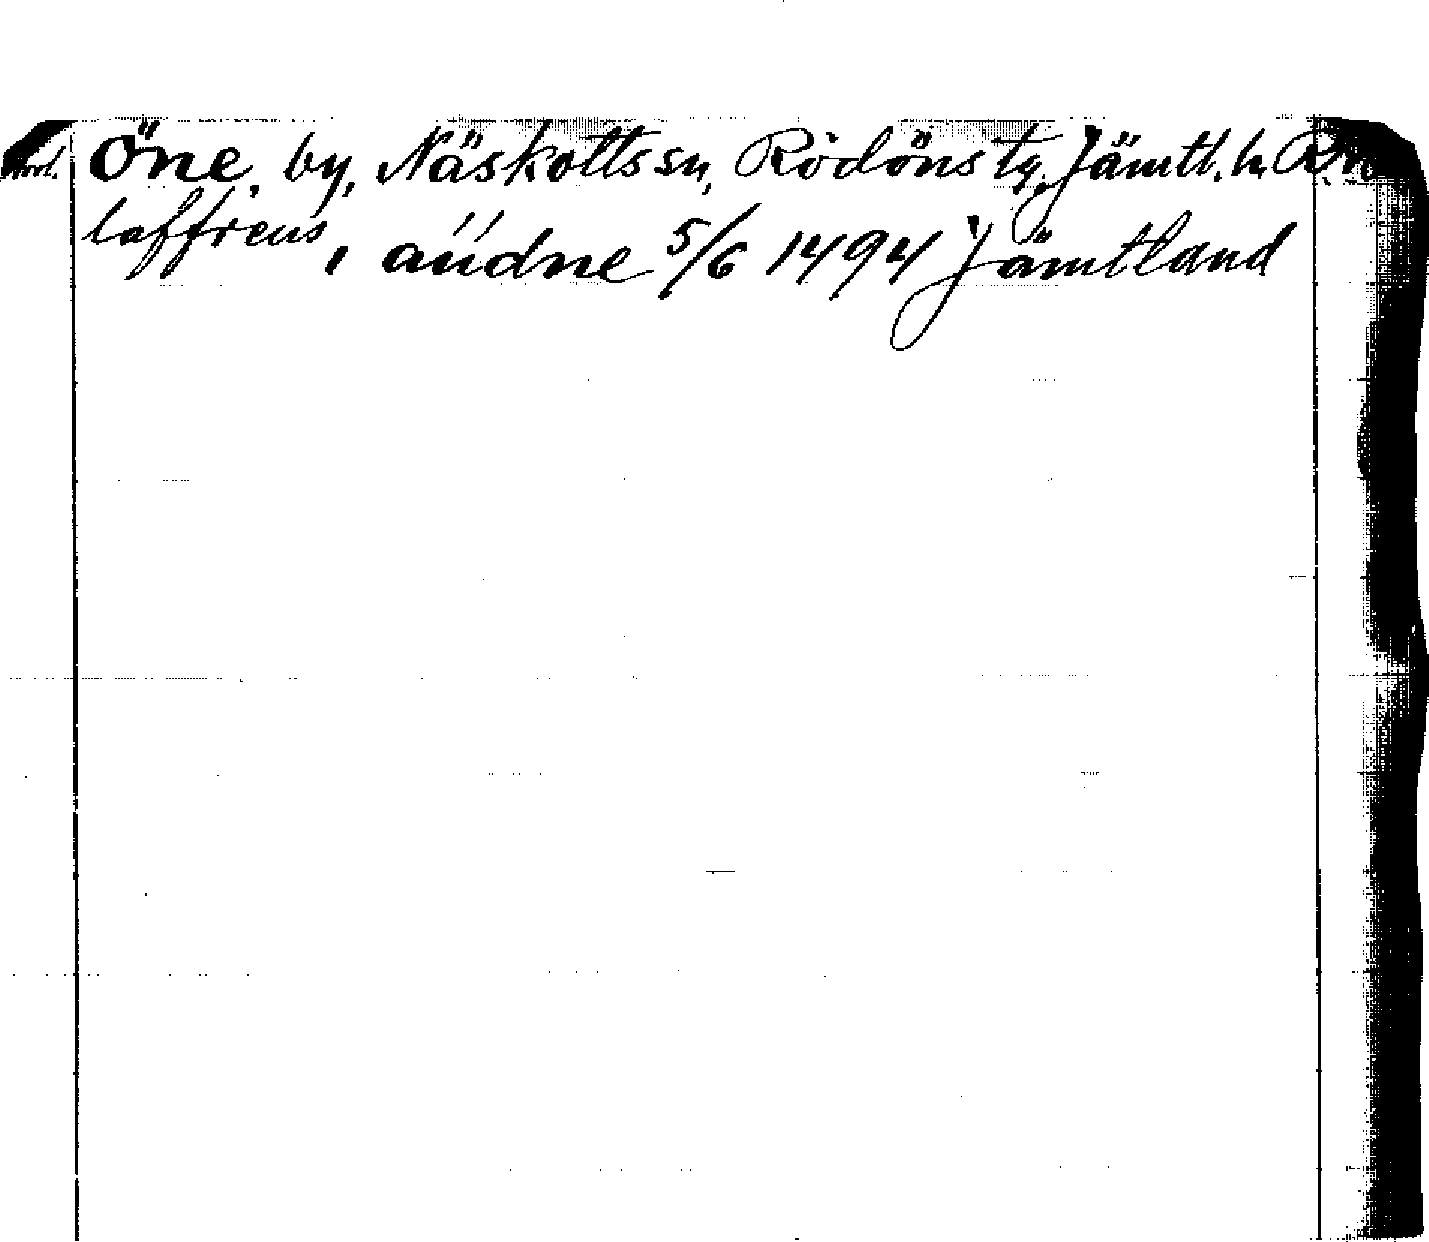 Öne, by, Näskotts sn, Rödöns tg, Jämtl. h.
laffrens, i aúdne 5/6 1494 Jämtland